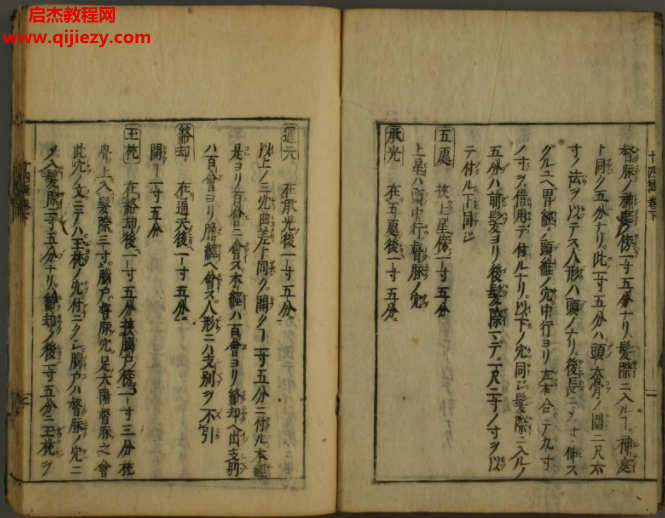 启杰教程网
www.qijiezy.com
督脉ノ神庭ノ傍一寸五分ナリ髪際ニ入ルヿ神庭
ト同ク五分ナリ此一寸五分ハ頭本骨ノ圍二尺六
寸ノ法ヲ以テス人形ハ頭ノナリ後長ニメ寸伸ス
グルユヘ胃經ノ頭維ノ穴中行ヨリ左右合テ九寸
ノ寸ヲ借用テ付ルナリ以下ノ穴同シ髪際ニ入ルノ
五分ハ前髪ヨリ後髪際マデ一尺二寸ノ寸ヲ以
テ付ル下同シ
五處 挾上星傍一寸五分
上星ハ頭中行督脉ノ穴
承光 在五處後一寸五分
通天 在承光後一寸五分
以上ノ三穴曲差ト同ク開クヿ一寸五分ニ付ル本經
是ヨリ百會ニ會ス本經ハ百會ヨリ絡却ヘ出支別
ハ百會ヨリ膽經ヘ會ス人形ニハ支別ヲ不引
絡却 在通天後一寸五分
開一寸五分
玉枕 在絡却後一寸五分挾腦戸傍一寸三分枕
骨上入髪際三寸腦戸督脉穴足太陽督脉之會
此穴ノ文ニテハ玉枕ノ穴付ニクシ腦戸ハ督脉ノ穴ニ
メ入髪際二寸五分ナリ絡却ノ後一寸五分ニ玉枕ヲ
十四經 卷下